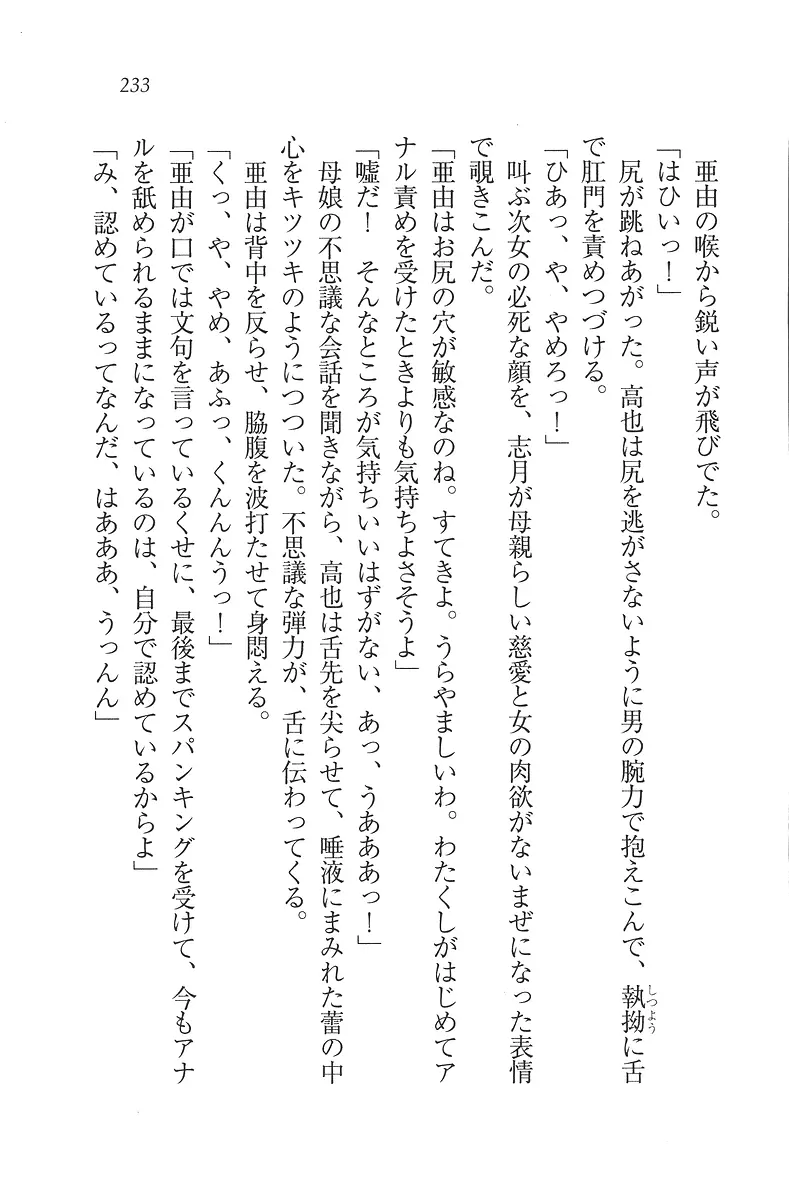 233
亜由の喉から鋭い声が飛びでた。
「はひいっ！」
尻が跳ねあがった。高也は尻を逃がさないように男の腕力で抱えこんで、執拗に舌
しつよう
で肛門を責めつづける。
「ひあっ、や、やめろっ！」
叫ぶ次女の必死な顔を、志月が母親らしい慈愛と女の肉欲がないまぜになった表情
で覗きこんだ。
「亜由はお尻の穴が敏感なのね。すてきよ。うらやましいわ。わたくしがはじめてア
ナル責めを受けたときよりも気持ちよさそうよ」
「嘘だ！　そんなところが気持ちいいはずがない、あっ、うあああっ！」
母娘の不思議な会話を聞きながら、高也は舌先を尖らせて、唾液にまみれた蕾の中
心をキツツキのようにつついた。不思議な弾力が、舌に伝わってくる。
亜由は背中を反らせ、脇腹を波打たせて身悶える。
「くっ、や、やめ、あふっ、くんんんうっ！」
「亜由が口では文句を言っているくせに、最後までスパンキングを受けて、今もアナ
ルを舐められるままになっているのは、自分で認めているからよ」
「み、認めているってなんだ、はあああ、うっんん」